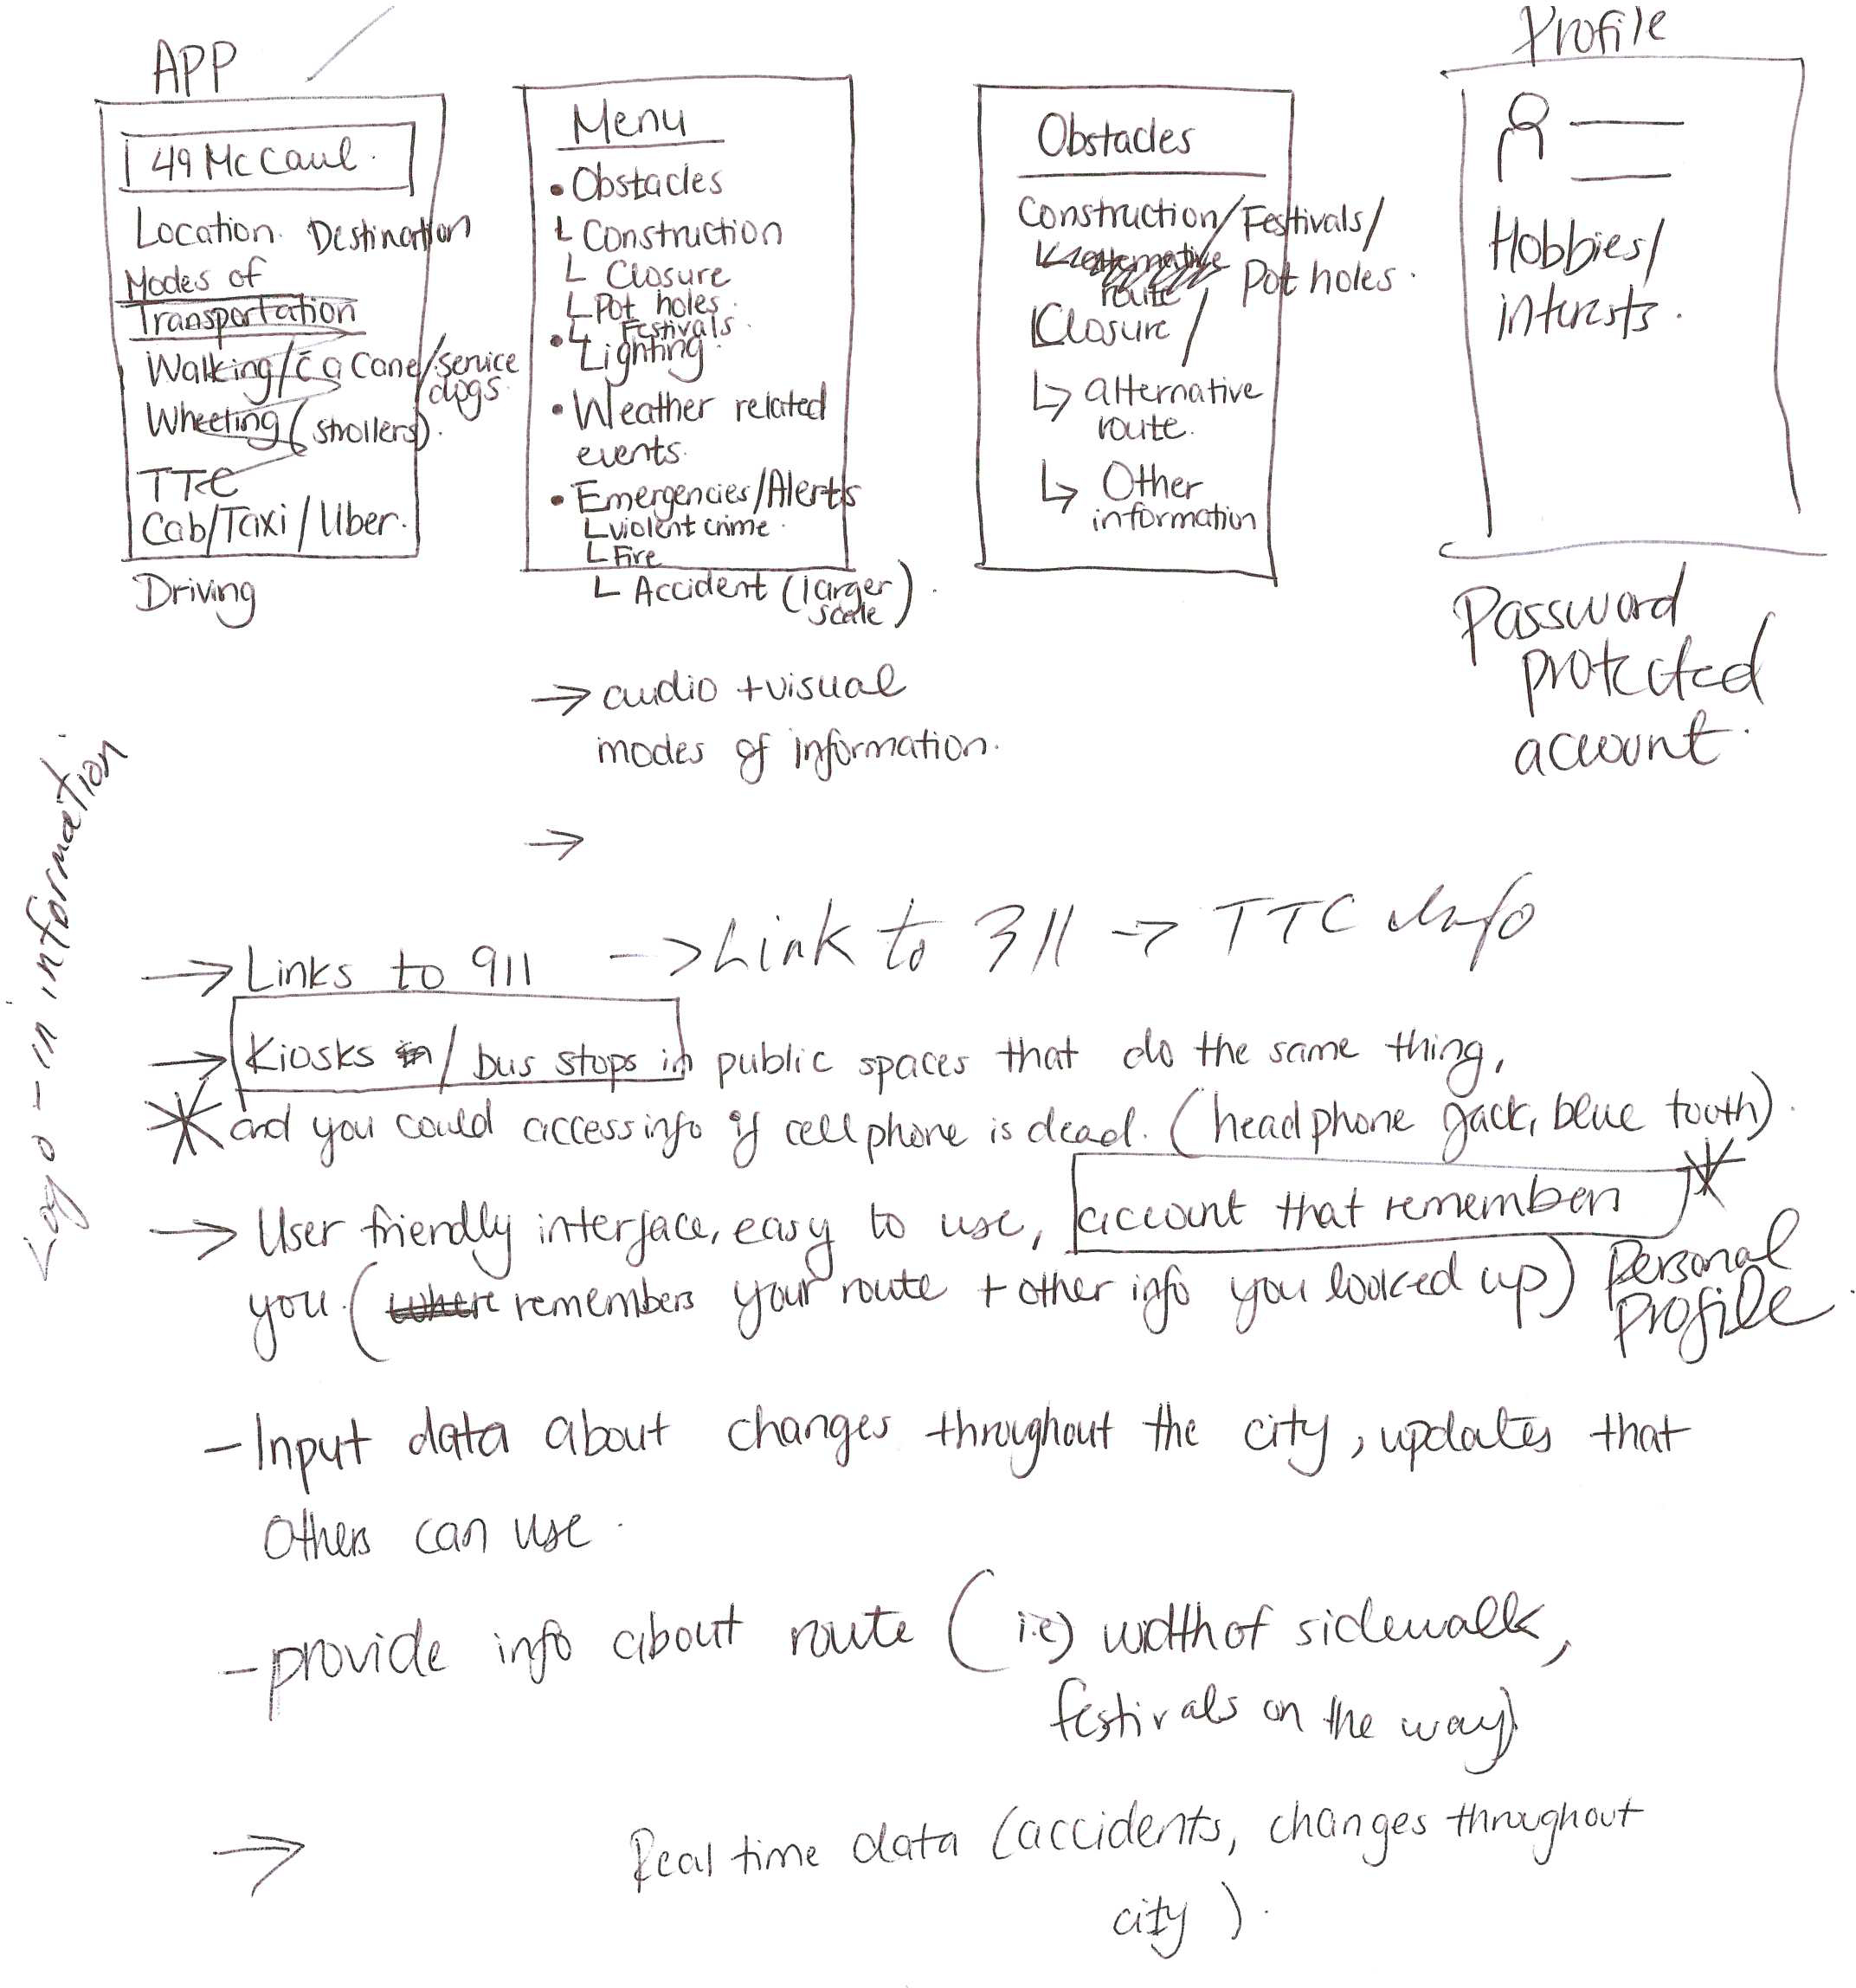 APP
49 McCaul.
Location. Destination
Modes of
Transportation
Walking/c̄ a Cane/service
dogs.
Wheeling (strollers).
TTC
Cab/Taxi/Uber.
Driving
Menu
• Obstacles
└ Construction
└ Closure
└ Pot holes.
└ Festivals.
• Lighting.
• Weather related
events.
• Emergencies/Alerts
└ violent crime.
└ Fire
└ Accident (larger
scale).
→ audio + visual
modes of information.
→
Obstacles
Construction/Festivals/
alternative
route
Pot holes.
Closure/
↳ alternative
route.
↳ Other
information
Profile
Hobbies/
interests.
Password
protected
account.
Log-in information
→ Links to 911 → Link to 311 → TTC info
→ Kiosks in/ bus stops in public spaces that do the same thing,
and you could access info if cell phone is dead. (headphone jack, blue tooth).
→ User friendly interface, easy to use, account that remembers
you. (where remembers your route + other info you looked up) personal
profile.
- Input data about changes throughout the city, updates that
others can use.
- provide info about route (i.e) width of sidewalk,
festivals on the way)
→ Real time data (accidents, changes throughout
city).